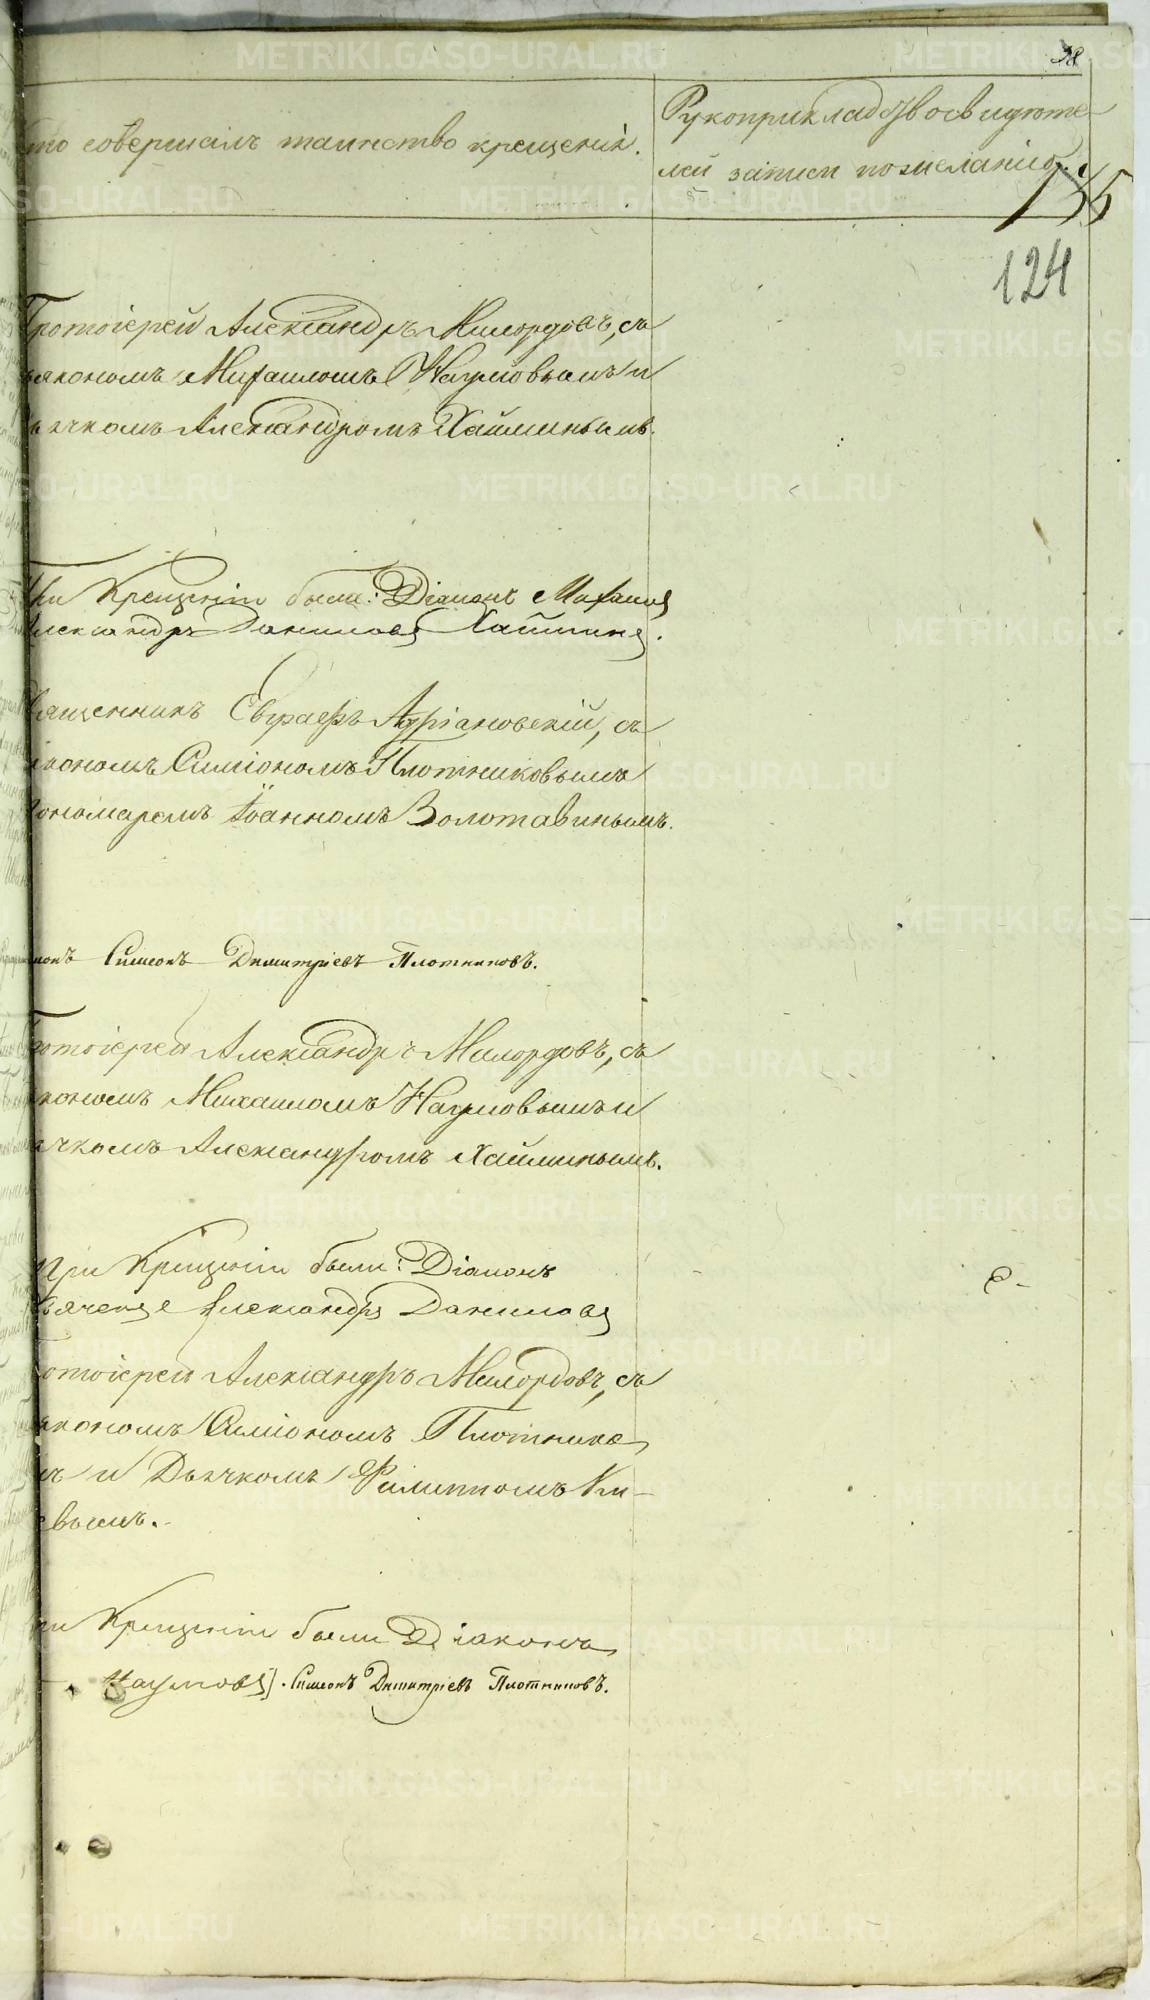 38
кто совершалъ таинство крещенія.
Рукоприкладство свидѣте-
лей записи по желанію.
135
124
Протоіерей Александръ Милордовъ, съ
Діакономъ Михаиломъ Наумовымъ и
Дьячкомъ Александромъ Хайминымъ.
При Крещеніи были: Діаконъ Михаилъ
Александръ Даниловъ Хайминъ.
Священник Евграфъ Адріановскій, съ
Діакономъ Симіономъ Плотниковымъ
Пономаремъ Іоанномъ Золотавинымъ.
Діаконъ Симеонъ Димитріевъ Плотниковъ.
Протоіерей Александръ Милордовъ, съ
Діакономъ Михаиломъ Наумовымъ и
Дьячкомъ Александромъ Хайминымъ.
При Крещеніи были: Діаконъ
Александръ Даниловъ
Протоіерей Александръ Милордовъ, съ
Діакономъ Симіономъ Плотнико
мъ и Дьячкомъ Филиппомъ Ки-
евымъ.
При Крещеніи были Діаконъ
Наумовъ. Симеонъ Димитріевъ Плотниковъ.
METRIKI.GASO-URAL.RU